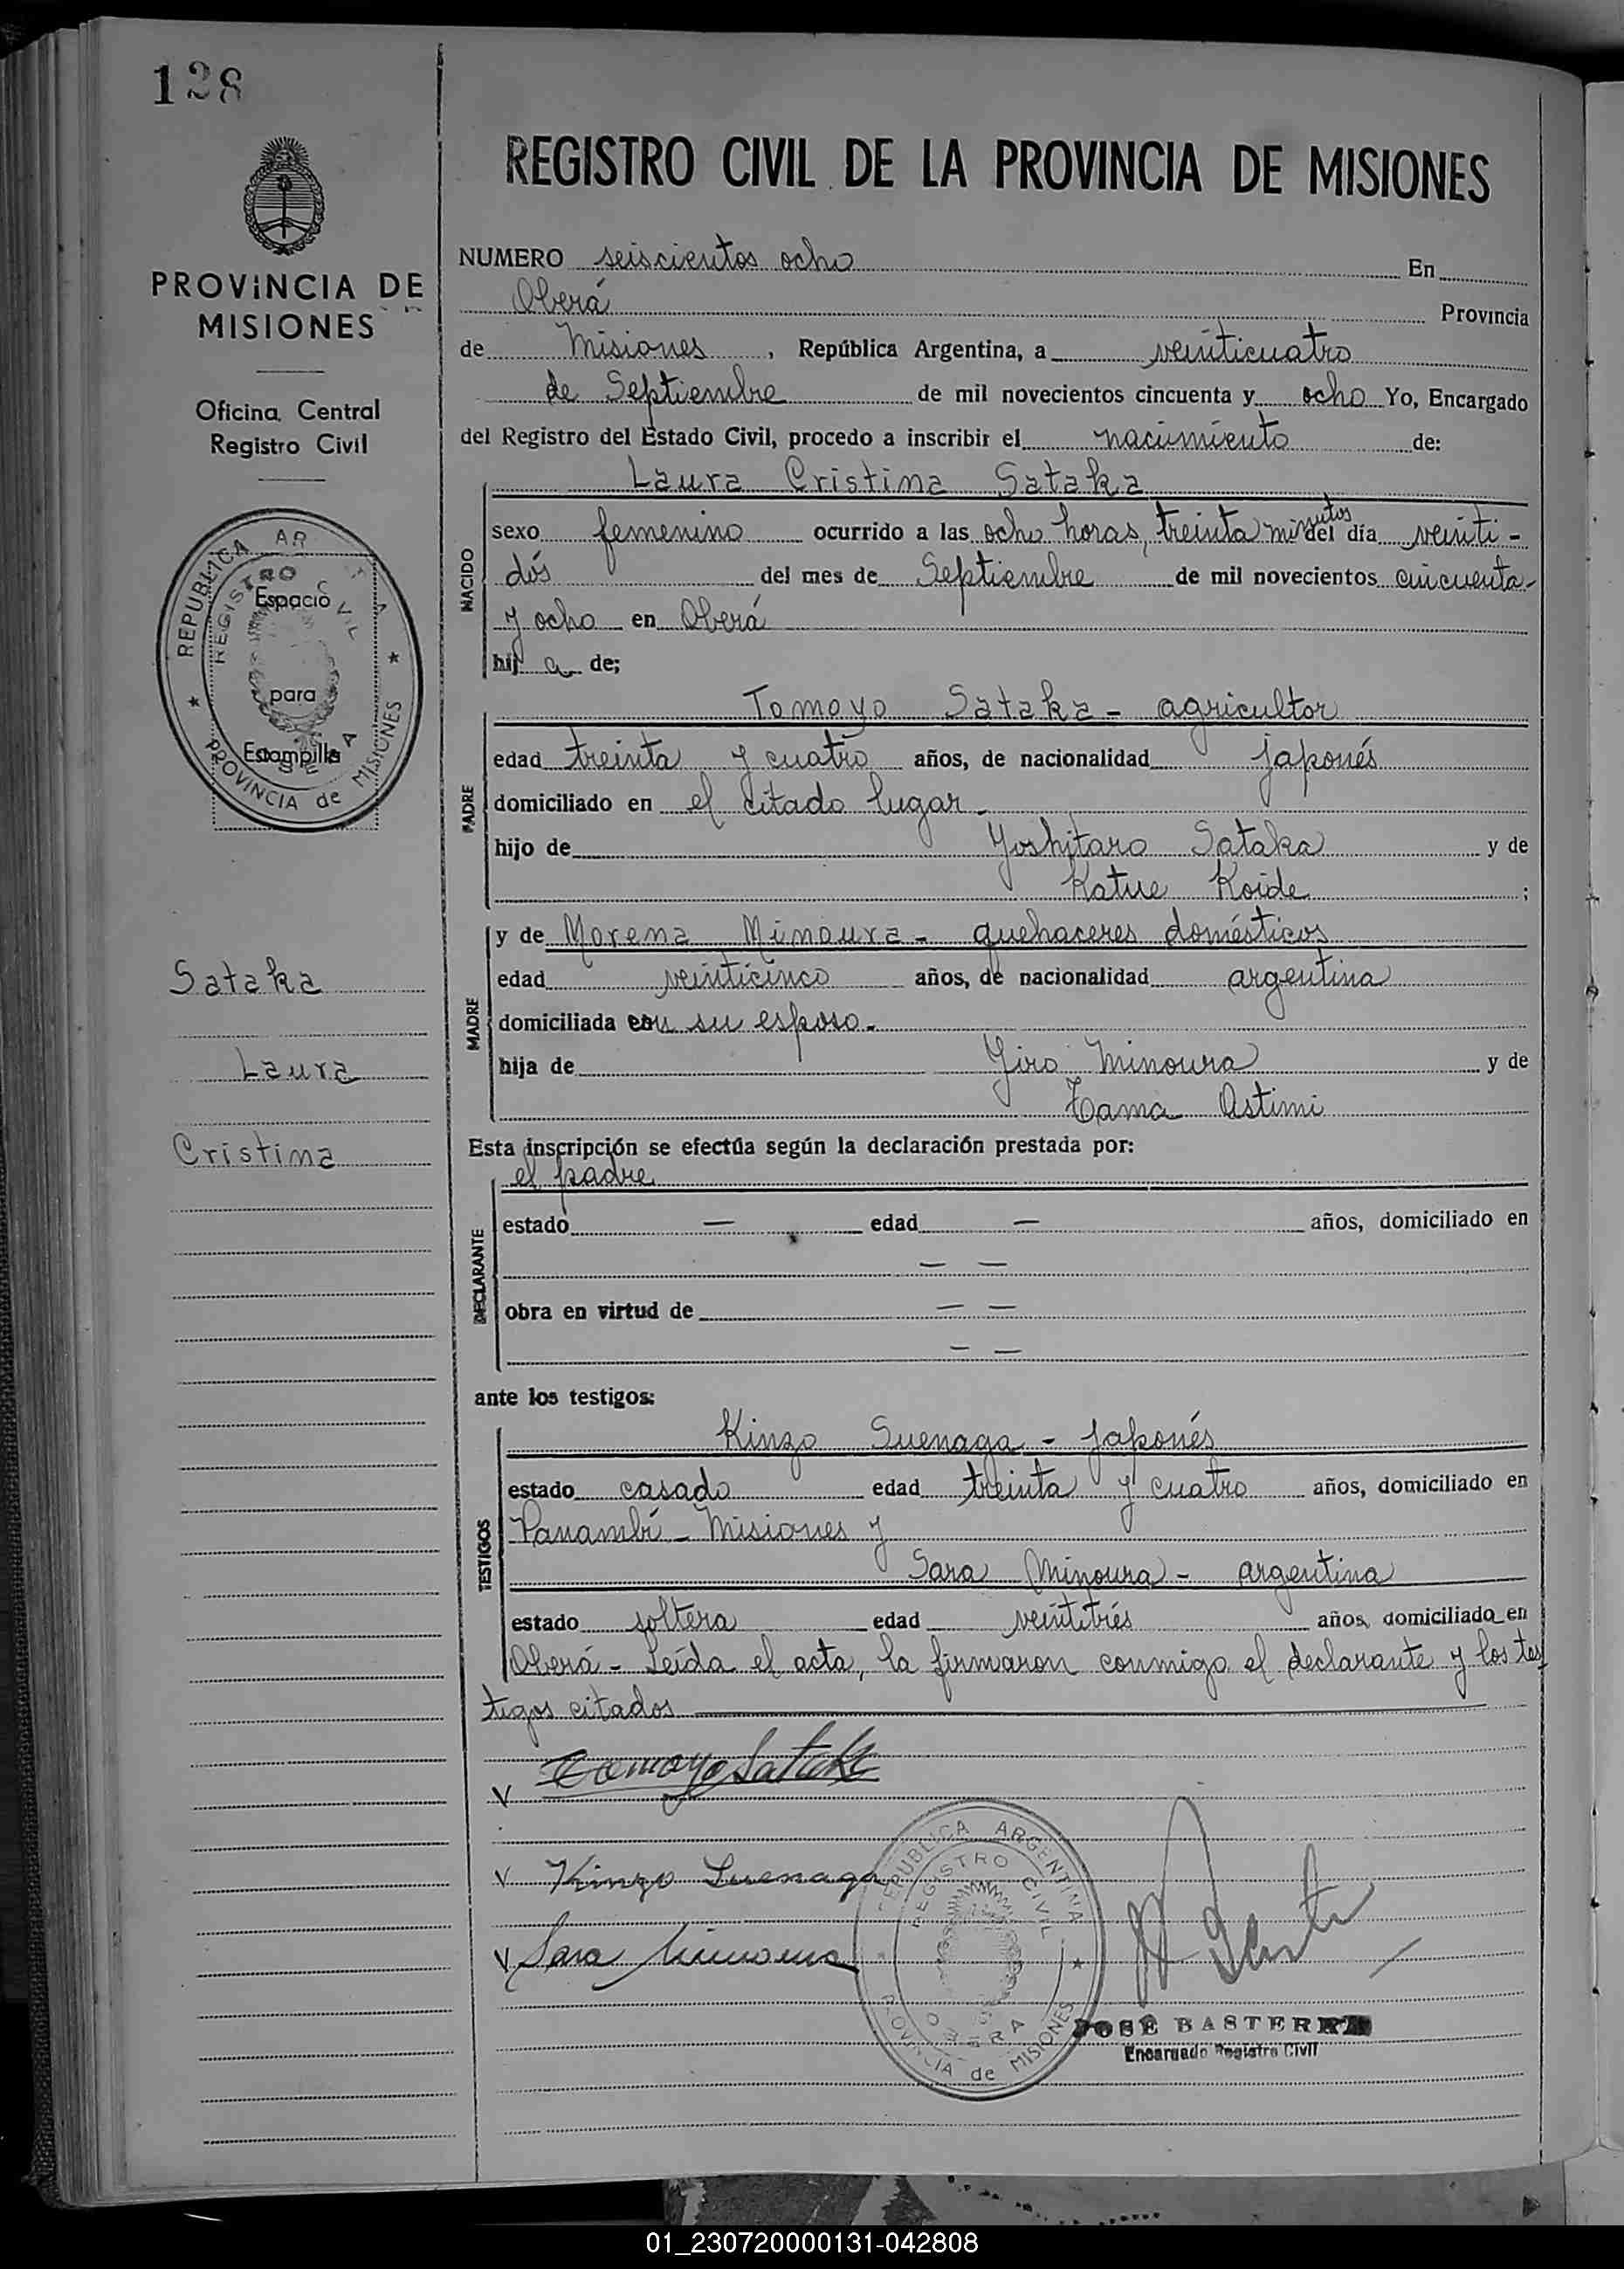 128
REGISTRO CIVIL DE LA PROVINCIA DE MISIONES
PROVINCIA DE
MISIONES
Oficina Central
Registro Civil
REPUBLICA AR
REGISTRO CIVIL
Espacio
para
Estampilla
PROVINCIA de MISIONES
Sataka
Laura
Cristina
NUMERO seiscientos ocho En
Oberá Provincia
de Misiones, República Argentina, a veinticuatro
de Septiembre de mil novecientos cincuenta y ocho Yo, Encargado
del Registro del Estado Civil, procedo a inscribir el nacimiento de:
NACIDO
Laura Cristina Sataka
sexo femenino ocurrido a las ocho horas, treinta minutos del día veinti-
dós del mes de Septiembre de mil novecientos cincuenta-
y ocho en Oberá
hij a de;
PADRE
Tomoyo Sataka - agricultor
edad treinta y cuatro años, de nacionalidad japonés
domiciliado en el citado lugar-
hijo de Yoshitaro Sataka y de
Katue Koide ;
MADRE
y de Morena Minoura - quehaceres domésticos
edad veinticinco años, de nacionalidad argentina
domiciliada con su esposo.-
hija de Yiro Minoura y de
Tama Astimi
Esta inscripción se efectúa según la declaración prestada por:
DECLARANTE
el padre
estado — edad — años, domiciliado en
— —
obra en virtud de — —
— —
ante los testigos:
TESTIGOS
Kinzo Suenaga - japonés
estado casado edad treinta y cuatro años, domiciliado en
Panambí - Misiones y
Sara Minoura - argentina
estado soltera edad veintitrés años, domiciliada en
Oberá - Leída el acta, la firmaron conmigo el declarante y los tes
tigos citados
V Tomoyo Sataka
V Kinzo Suenaga
V Sara Minoura
REPUBLICA ARGENTINA
REGISTRO CIVIL
OBERA
PROVINCIA de MISIONES
JOSÉ BASTERRA
Encargado Registro Civil
01_230720000131-042808